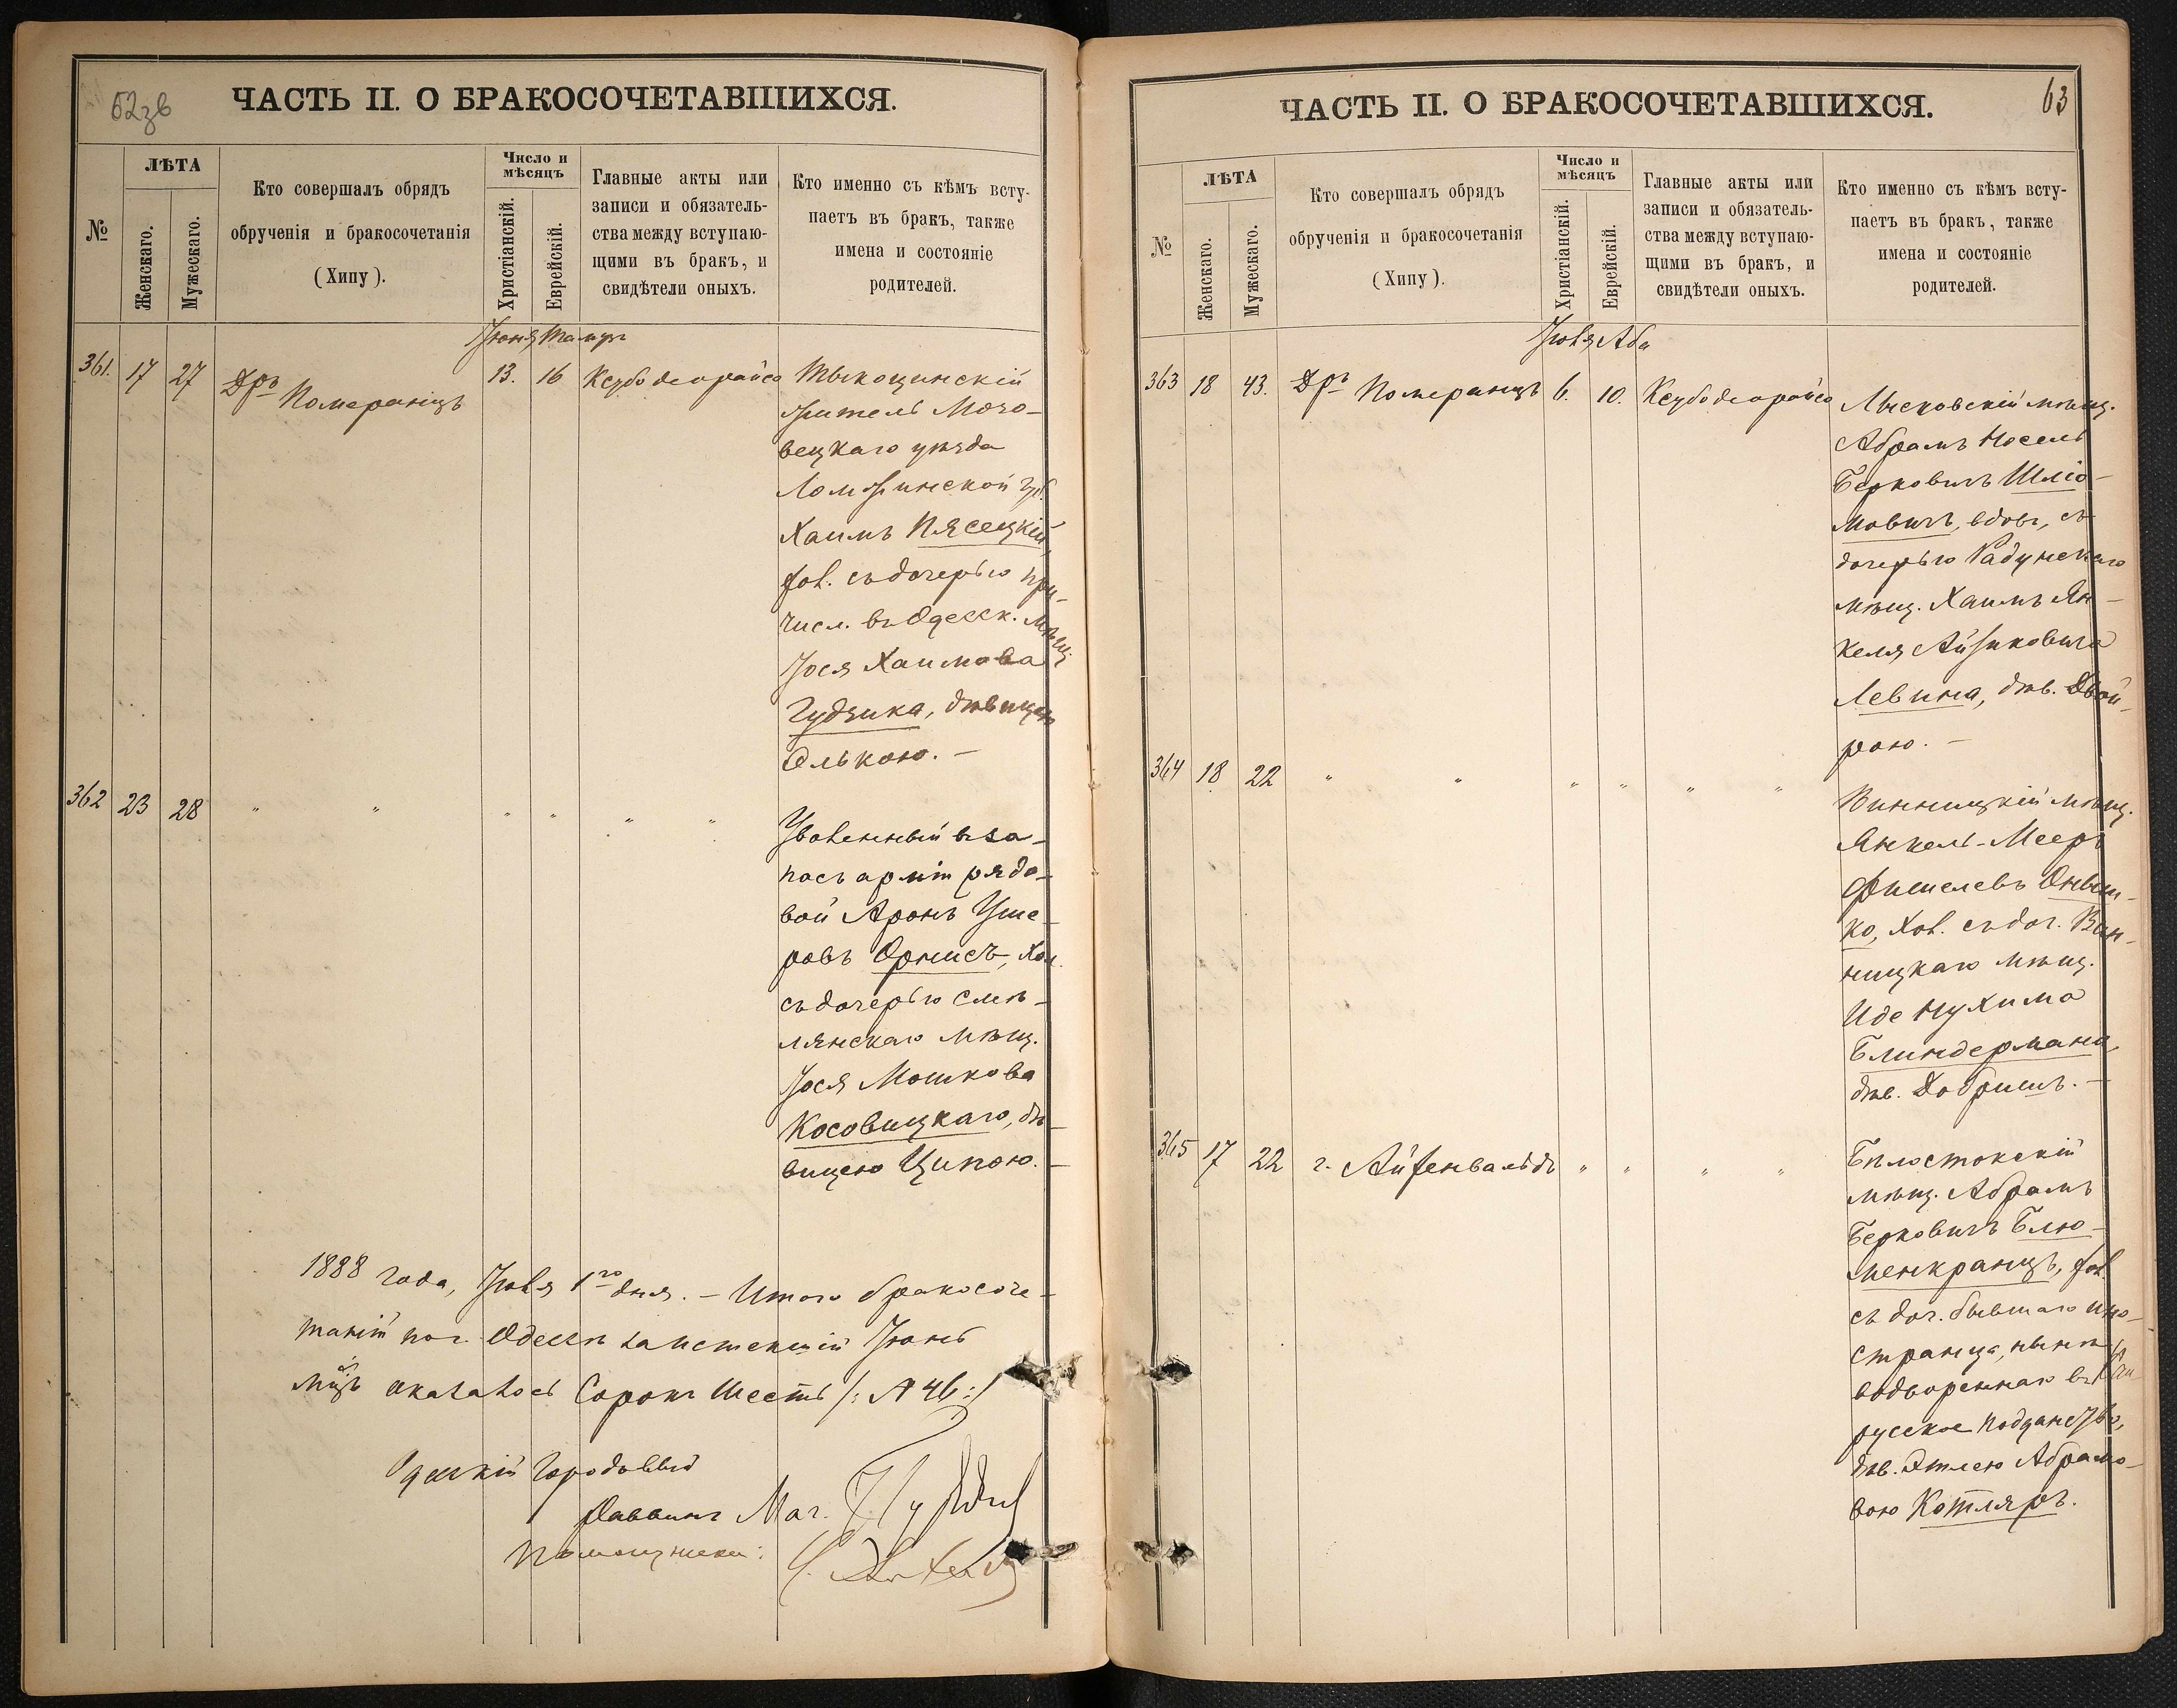 62зв
ЧАСТЬ II. О БРАКОСОЧЕТАВШИХСЯ.
№
ЛѢТА
Женскаго.
Мужескаго.
Кто совершалъ обрядъ
обрученія и бракосочетанія
(Хипу).
Число и
мѣсяцъ
Христіанскій.
Еврейскій.
Главные акты или
записи и обязатель-
ства между вступаю-
щими въ бракъ, и
свидѣтели оныхъ.
Кто именно съ кѣмъ всту-
паетъ въ бракъ, также
имена и состояніе
родителей.
Іюня Тамуз
361. 17 27 Дръ Померанцъ 13. 16 Ксубо деорайсо
Тыкоцинскій
житель Мазо-
вецкаго уѣзда
Ломжинской губ.
Хаимъ Пясецкій,
хол. съ дочерью при-
числ. въ Одесск. мѣщ.
Іося Хаимова
Гудзика, дѣвицею
Элькою. —
362 23 28 " " " " " "
Уволенный въ за-
пасъ арміи рядо-
вой Аронъ Уше-
ровъ Орнисъ, хол.
съ дочерью Смѣ-
лянскаго мѣщ.
Іося Мошкова
Косовицкаго, дѣ-
вицею Ципою. —
1888 года, Іюля 1го дня. — Итого бракосоче-
таній по г. Одессѣ за истекшій Іюнь
мѣц оказалось Сорокъ Шесть /: № 46 :/
Одесскій Городовый
Раввинъ Маг.
Помощникъ:
63
ЧАСТЬ II. О БРАКОСОЧЕТАВШИХСЯ.
№
ЛѢТА
Женскаго.
Мужескаго.
Кто совершалъ обрядъ
обрученія и бракосочетанія
(Хипу).
Число и
мѣсяцъ
Христіанскій.
Еврейскій.
Главные акты или
записи и обязатель-
ства между вступаю-
щими въ бракъ, и
свидѣтели оныхъ.
Кто именно съ кѣмъ всту-
паетъ въ бракъ, также
имена и состояніе
родителей.
Іюля Аба
363 18 43. Дръ Померанцъ 6. 10. Ксубо деорайсо
Лысковскій мѣщ.
Абрамъ Носель
Берковичъ Шліо-
мовичъ, вдов., съ
дочерью Радунскаго
мѣщ. Хаимъ Ян-
келя Айзиковича
Левина, дѣв. Двой-
рою. —
364 18 22 " " " " " "
Винницкій мѣщ.
Янкель-Мееръ
Фишелевъ Оныш-
ко, хол. съ доч. Вин-
ницкаго мѣщ.
Иде Нухима
Блиндермана,
дѣв. Добришъ. —
365 17 22 г. Айзенвальдъ " " " "
Бѣлостокскій
мѣщ. Абрамъ
Берковичъ Блю-
менкранцъ, хол.
съ доч. бывшаго ино-
странца, нынѣ
водвореннаго въ
русское подданство,
дѣв. Этлею Абрамо-
вою Котляръ.